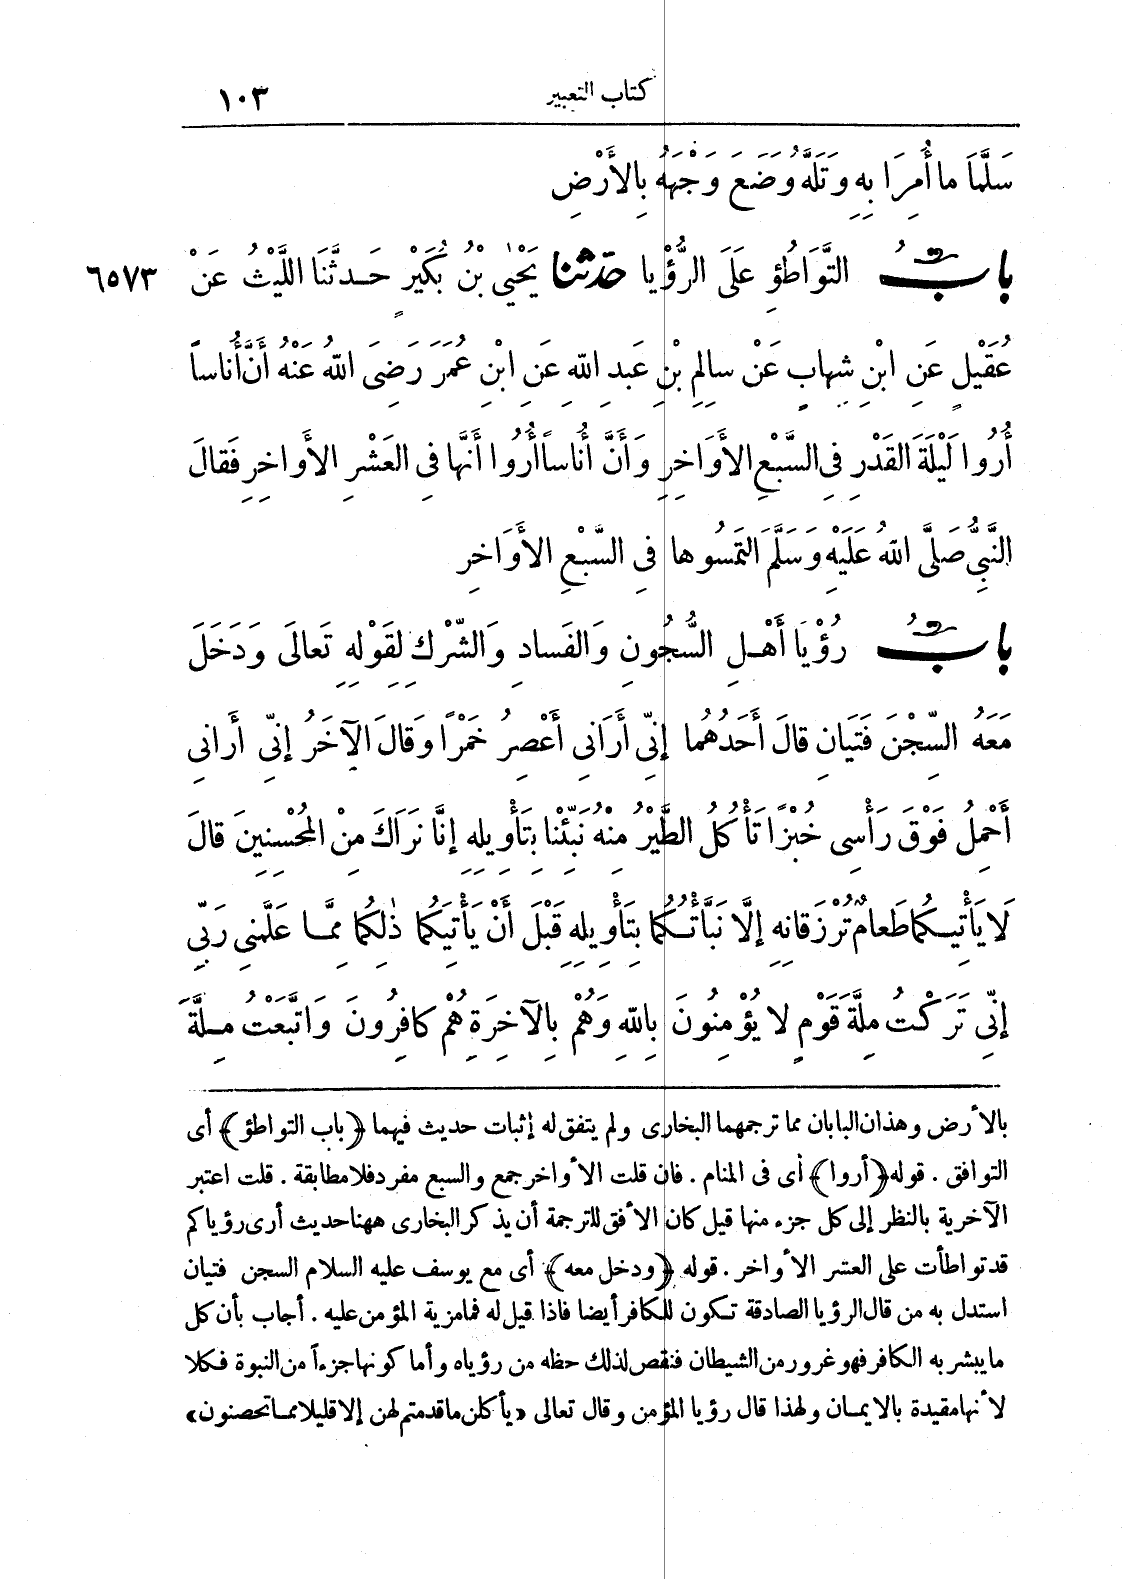 كتاب التعبير ١٠٣
سَلَّمَا ما أُمِرَا بِهِ وَتَلَّهُ وَضَعَ وَجْهَهُ بِالأَرْضِ
بابُ التَّوَاطُؤِ عَلَى الرُّؤْيا حَدَّثنا يَحْيَى بْنُ بُكَيْرٍ حَدَّثَنَا اللَّيْثُ عَنْ ٦٥٧٣
عُقَيْلٍ عَنِ ابْنِ شِهابٍ عَنْ سالِمِ بْنِ عَبدِ اللهِ عَنِ ابْنِ عُمَرَ رَضِىَ اللهُ عَنْهُ أَنَّ أُناساً
أُرُوا لَيْلَةَ القَدْرِ فِى السَّبْعِ الأَوَاخِرِ وَأَنَّ أُناساً أُرُوا أَنَّها فِى العَشْرِ الأَواخِرِ فَقالَ
النَّبِىُّ صَلَّى اللهُ عَلَيْهِ وَسَلَّمَ التَمِسُوها فِى السَّبْعِ الأَوَاخِرِ
بابُ رُؤْيَا أَهْلِ السُّجُونِ وَالفَسادِ وَالشِّرْكِ لِقَوْلِهِ تَعالَى وَدَخَلَ
مَعَهُ السِّجْنَ فَتَيَانِ قالَ أَحَدُهُما إِنِّى أَرَانِى أَعْصِرُ خَمْرًا وَقالَ الآخَرُ إِنِّى أَرانِى
أَحْمِلُ فَوْقَ رَأْسِى خُبْزًا تَأْكُلُ الطَّيْرُ مِنْهُ نَبِّئْنا بِتَأْوِيلِهِ إِنَّا نَرَاكَ مِنْ المُحْسِنِينَ قالَ
لَا يَأْتِيكُما طَعامٌ تُرْزَقانِهِ إِلَّا نَبَّأْتُكُما بِتَأْوِيلِهِ قَبْلَ أَنْ يَأْتِيَكُما ذٰلِكُما مِمَّا عَلَّمَنِى رَبِّى
إِنِّى تَرَكْتُ مِلَّةَ قَوْمٍ لا يُؤْمِنُونَ بِاللهِ وَهُمْ بِالآخِرَةِ هُمْ كافِرُونَ وَاتَّبَعْتُ مِلَّةَ
بالأرض وهذان البابان مما ترجمهما البخارى ولم يتفق له إثبات حديث فيهما ﴿باب التواطؤ﴾ أى
التوافق . قوله ﴿أروا﴾ أى فى المنام . فان قلت الأواخر جمع والسبع مفرد فلا مطابقة . قلت اعتبر
الآخرية بالنظر إلى كل جزء منها قيل كان الأفق للترجمة أن يذكر البخارى ههنا حديث أرى رؤياكم
قد تواطأت على العشر الأواخر . قوله ﴿ودخل معه﴾ أى مع يوسف عليه السلام السجن فتيان
استدل به من قال الرؤيا الصادقة تكون للكافر أيضا فاذا قيل له فما مزية المؤمن عليه . أجاب بأن كل
ما يبشر به الكافر فهو غرور من الشيطان فنقص لذلك حظه من رؤياه وأما كونها جزءاً من النبوة فكلا
لأنها مقيدة بالايمان ولهذا قال رؤيا المؤمن وقال تعالى «يأكلن ما قدمتم لهن إلا قليلا مما تحصنون»